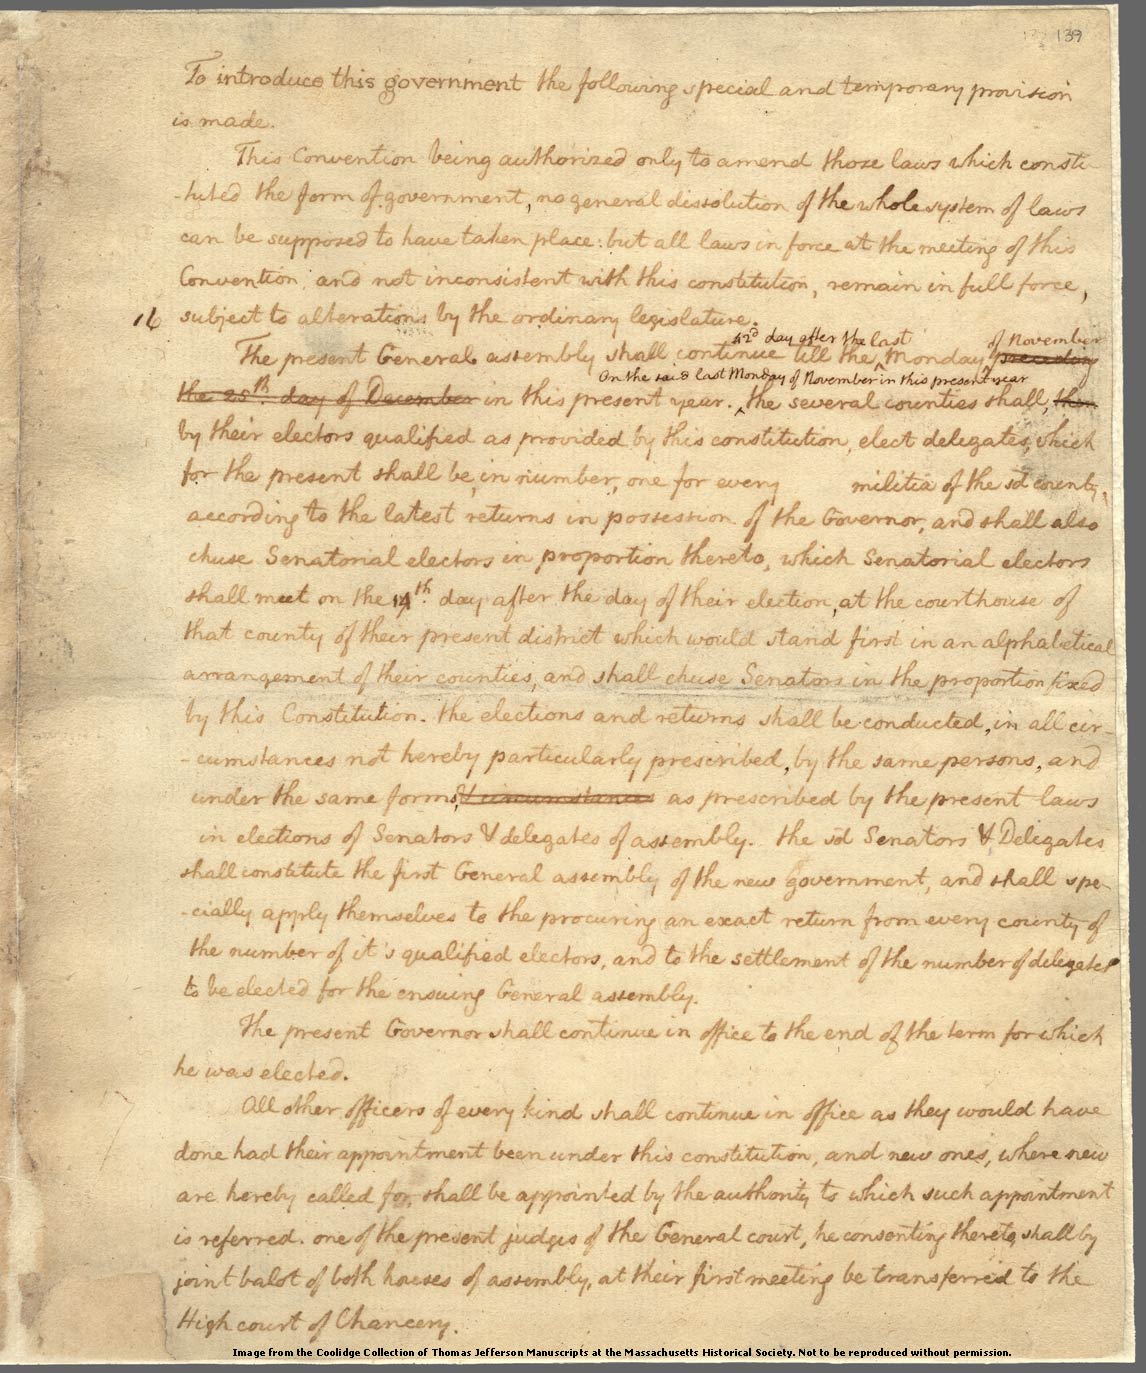 139
To introduce this government the following special and temporary provision
is made.
This Convention being authorized only to amend those laws which consti-
-tuted the form of government, no general dissolution of the whole system of laws
can be supposed to have taken place: but all laws in force at the meeting of this
Convention, and not inconsistent with this constitution, remain in full force,
16 subject to alterations by the ordinary legislature.
42d day after the last of November
The present General assembly shall continue till the Monday preceding
On the said last Monday of November in this present year
the 25th. day of December in this present year. the several counties shall, then
by their electors qualified as provided by this constitution, elect delegates, which
for the present shall be, in number, one for every militia of the sd county,
according to the latest returns in possession of the Governor, and shall also
chuse Senatorial electors in proportion thereto, which Senatorial electors
shall meet on the 14th. day after the day of their election, at the courthouse of
that county of their present district which would stand first in an alphabetical
arrangement of their counties, and shall chuse Senators in the proportion fixed
by this Constitution. the elections and returns shall be conducted, in all cir-
-cumstances not hereby particularly prescribed, by the same persons, and
under the same forms, & circumstances as prescribed by the present laws
in elections of Senators & delegates of assembly. the sd Senators & Delegates
shall constitute the first General assembly of the new government, and shall spe-
-cially apply themselves to the procuring an exact return from every county of
the number of it's qualified electors, and to the settlement of the number of delegates
to be elected for the ensuing General assembly.
The present Governor shall continue in office to the end of the term for which
he was elected.
All other officers of every kind shall continue in office as they would have
done had their appointment been under this constitution, and new ones, where new
are hereby called for, shall be appointed by the authority to which such appointment
is referred. one of the present judges of the General court, he consenting thereto, shall by
joint balot of both houses of assembly, at their first meeting be transferred to the
High court of Chancery.
Image from the Coolidge Collection of Thomas Jefferson Manuscripts at the Massachusetts Historical Society. Not to be reproduced without permission.